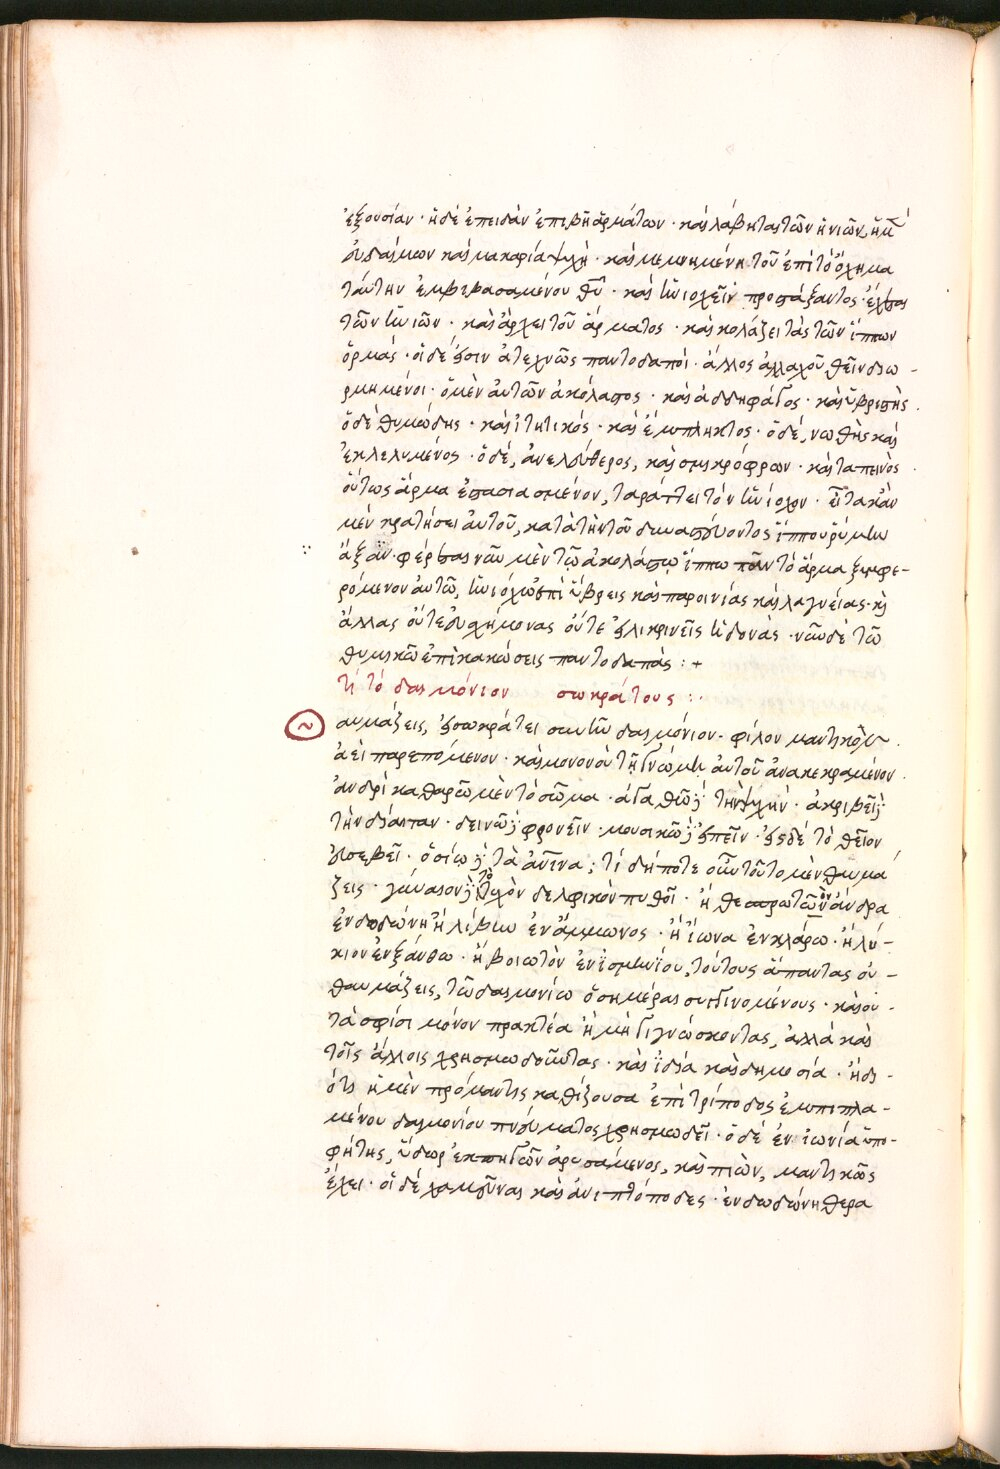 ἐξουσίαν · ἡ δὲ ἐπειδὰν ἐπιβῇ ἁρμάτων · καὶ λάβηται τῶν ἡνιῶν, ἡ μ
εὐδαίμων καὶ μακαρία ψυχὴ · καὶ μεμνημένη τοῦ ἐπὶ τὸ ὄχημα
ταύτην ἐμβιβασαμένου θῦ · καὶ ἡνιοχεῖν προστάξαντος · ἔχεται
τῶν ἡνιῶν · καὶ ἄρχει τοῦ ἅρματος · καὶ κολάζει τὰς τῶν ἵππων
ὁρμάς · οἱ δέ εἰσιν ἀτεχνῶς παντοδαποί · ἄλλος ἀλλαχοῦ θεῖν διω-
ρμημένοι · ὁ μὲν αὐτῶν ἀκόλαστος · καὶ ἀδδηφάγος · καὶ ὑβριστής ·
ὁ δὲ θυμώδης · καὶ ἰτητικός · καὶ ἔμπληκτος · ὁ δέ, νωθὴς καὶ
ἐκλελυμένος · ὁ δέ, ἀνελεύθερος, καὶ σμικρόφρων · καὶ ταπεινὸς ·
οὕτως ἅρμα στασιασμένον, ταράττει τὸν ἡνίοχον · εἶτα κἂν
μὲν κρατήσει αὐτοῦ, κατὰ τὴν τοῦ δυναστεύοντος ἵππου ῥύμην
ἄξαν · φέρεται νῦν μὲν τῷ ἀκολάστῳ ἵππῳ πᾶν τὸ ἅρμα ξυμφε-
ρόμενον αὐτῷ, ἡνιόχῳ ἐπὶ ὕβρεις καὶ παροινίας καὶ λαγνείας · κὶ
ἄλλας οὔτε εὐσχήμονας οὔτε εἰλικρινεῖς ἡδονάς · νῦν δὲ τῷ
θυμικῷ ἐπὶ κακώσεις παντοδαπάς : +
τί τὸ δαιμόνιον σωκράτους : ·
αυμάζεις, εἰ σωκράτει συνῆν δαιμόνιον · φίλον μαντικὸν
ἀεὶ παρεπόμενον · καὶ μόνον οὐ τῇ γνώμῃ αὐτοῦ ἀνακεκραμένον ·
ἀνδρὶ καθαρῷ μὲν τὸ σῶμα · ἀγαθῷ δὲ τὴν ψυχήν · ἀκριβεῖ δὲ
τὴν δίαιταν · δεινῷ δὲ φρονεῖν · μουσικῷ δὲ εἰπεῖν · εἰς δὲ τὸ θεῖον
εὐσεβεῖ · ὁσίῳ δὲ τὰ ἀνινα; τί δήποτε οὖν τοῦτο μὲν θαυμά
ζεις · γύναιον δὲ τὸ τυχὸν δελφικὸν πυθοῖ · ἢ θεσπρωτῶν ὂν ἄνδρα
ἐν δωδώνη ἢ λίβυν ἐν ἄμμωνος · ἢ ἴωνα ἐν κλάρω · ἢ λύ-
κιον ἐν ξάνθω · ἢ βοιωτὸν ἐν ἰσμηνίου, τούτους ἅπαντας οὐ -
θαυμάζεις, τῷ δαιμονίῳ ὁσημέραι συγγινομένους · καὶ οὐ -
τὰ σφίσι μόνον πρακτέα ἢ μὴ γιγνώσκοντας, ἀλλὰ καὶ
τοῖς ἄλλοις χρησμωδοῦντας · καὶ ἰδία καὶ δημοσία · ἢ δι -
ότι ἡ μὲν πρόμαντις καθίζουσα ἐπὶ τρίποδος ἐμπιπλα -
μένου δαιμονίου πνεύματος χρησμωδεῖ · ὁ δὲ ἐν ἰωνία ὑπο-
φήτης, ὕδωρ ἐκ πηγῶν ἀρυσάμενος, καὶ πιών, μαντικῶς
ἔχει · οἱ δὲ χαμεῦναι καὶ ἀνιπτόποδες · ἐν δωδώνη θερα